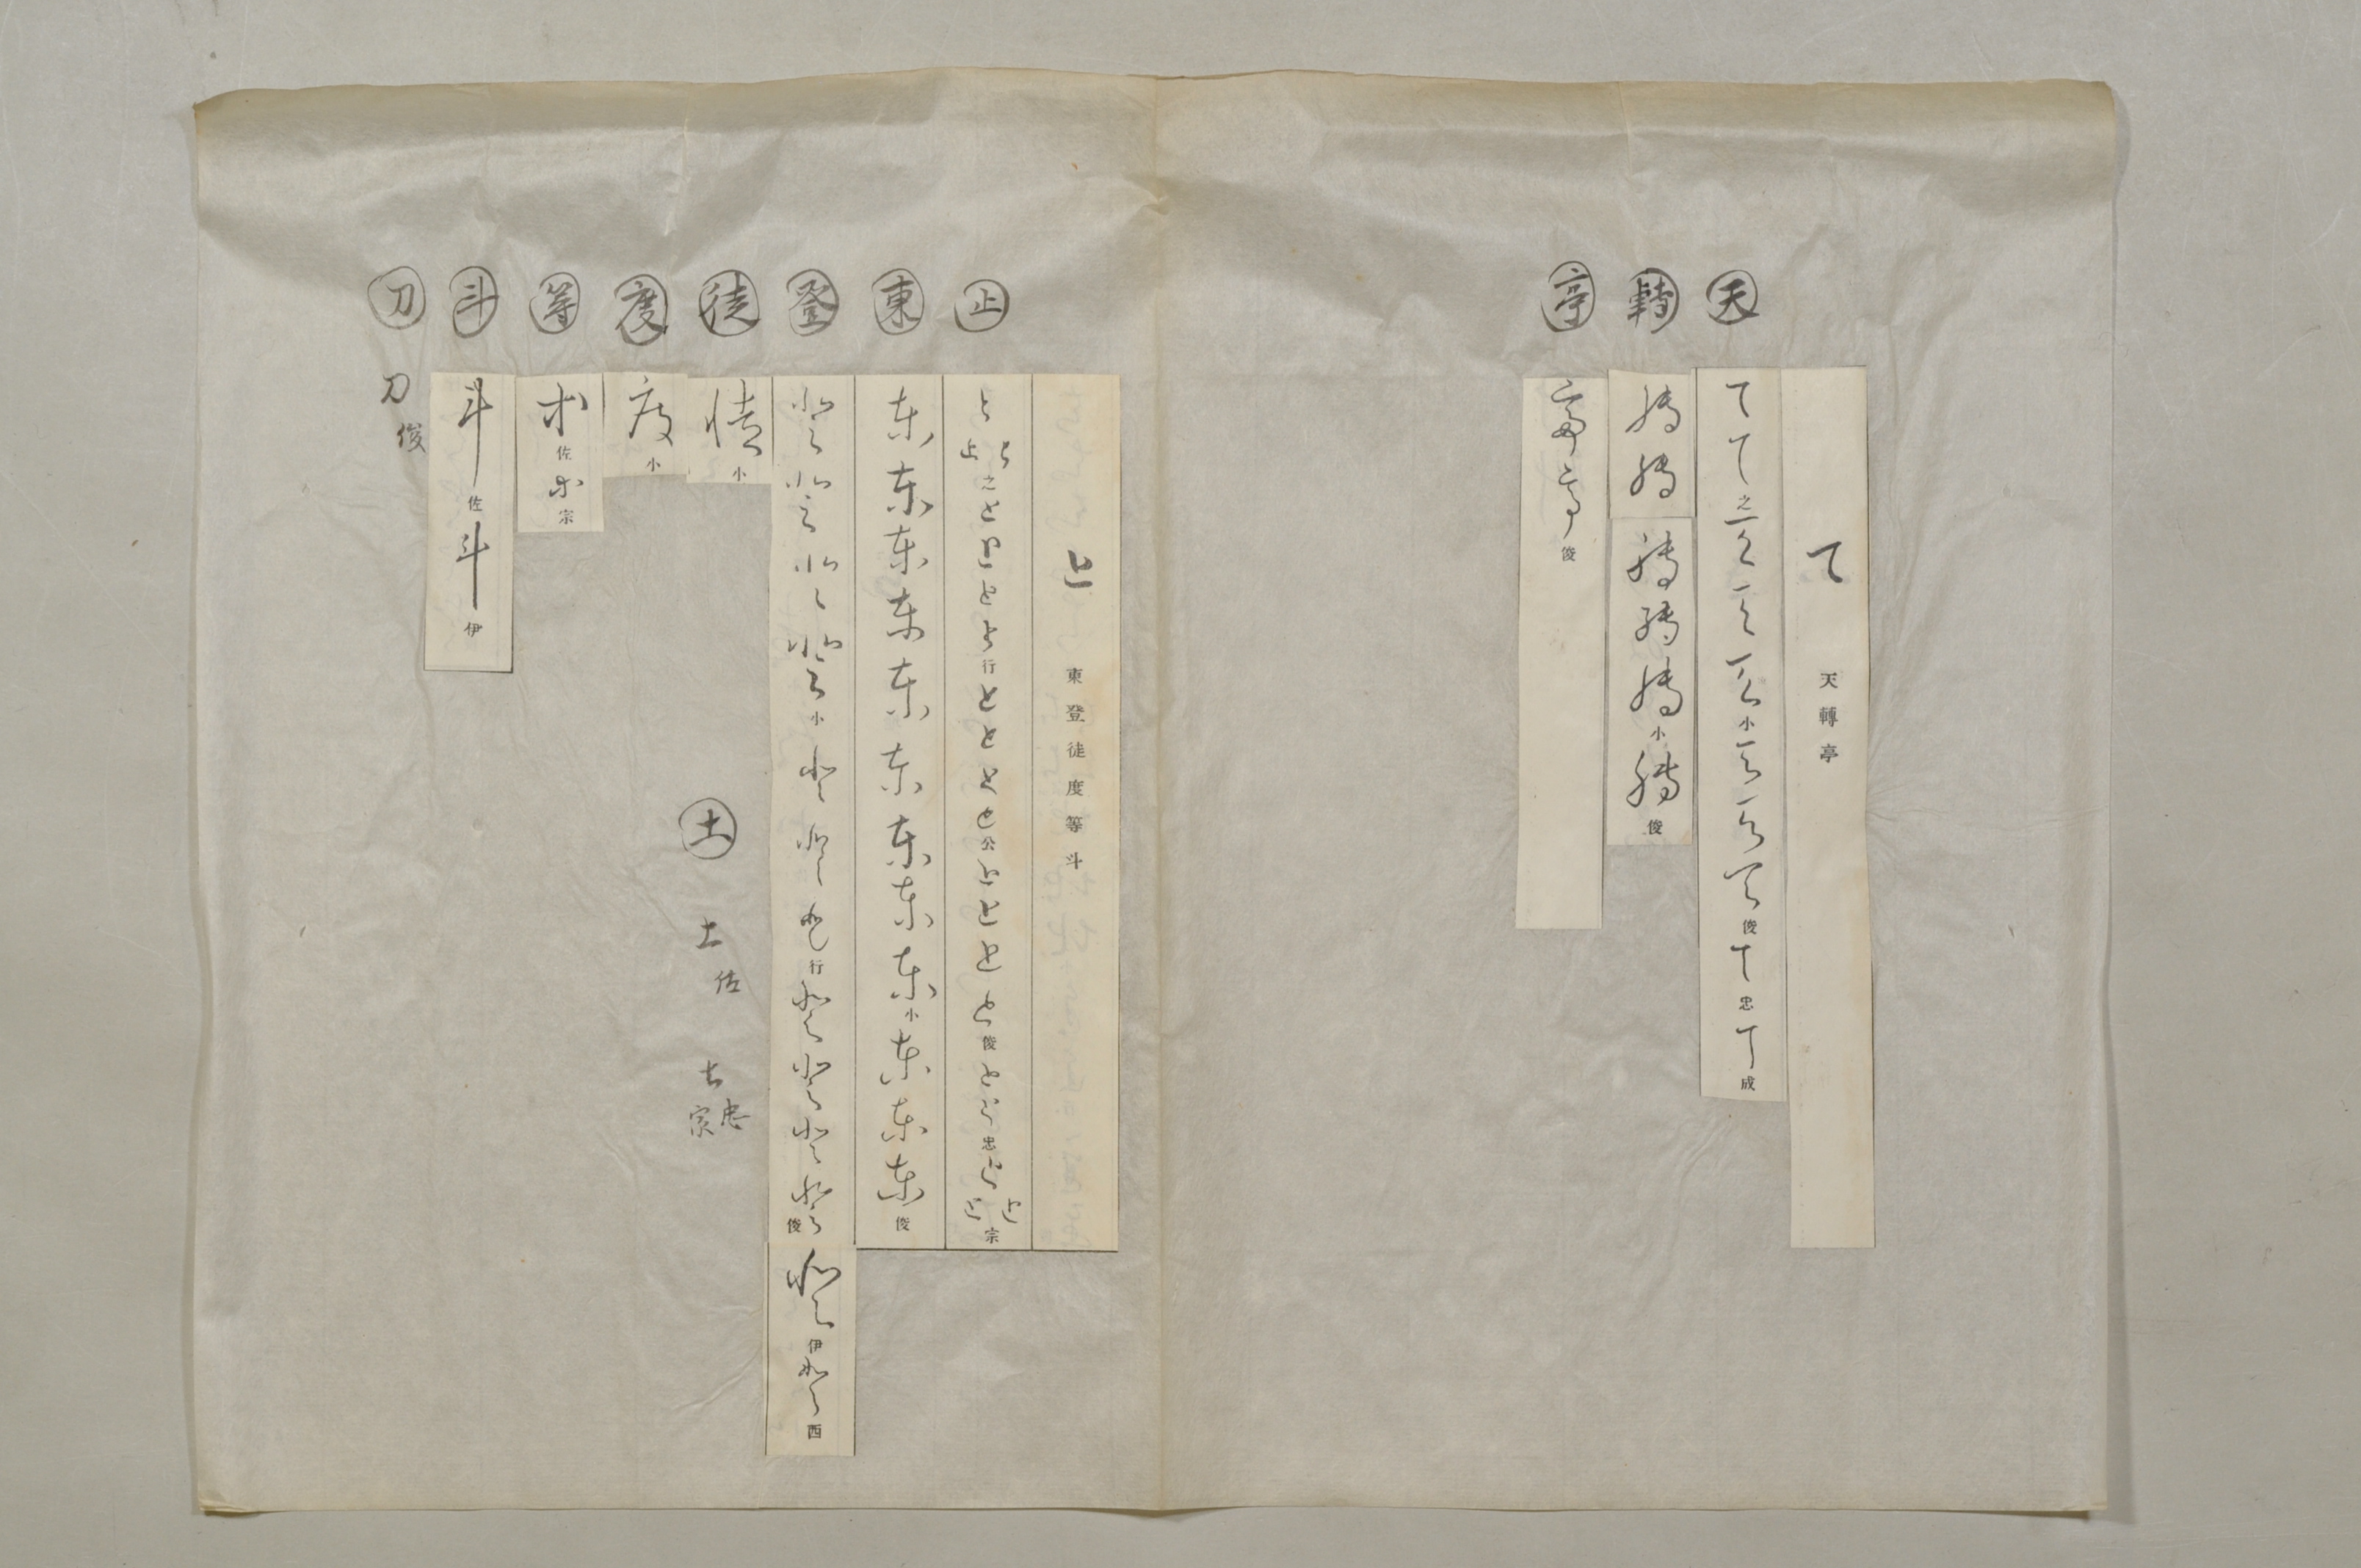 天
て 天轉亭
てて之ててて小ててて俊て忠て成
轉
轉轉轉轉轉小轉俊
亭
亭亭俊
と 東登徒度等斗
止
ととと之とととと行とととと公とととと俊とと忠ととと宗
東
東東東東東東東東東小東東東俊
登
登登登登小登登登行登登登登俊登伊登西
徒
徒小
土
土佐
土忠宗
度
度小
等
等佐等宗
斗
斗佐斗伊
刀
刀俊